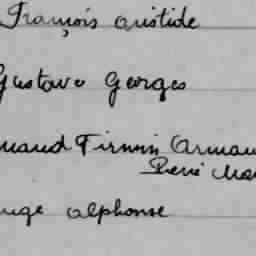 François Aristide
Gustave Georges
Firmin Arman
Pierre Ma
uge alphonse